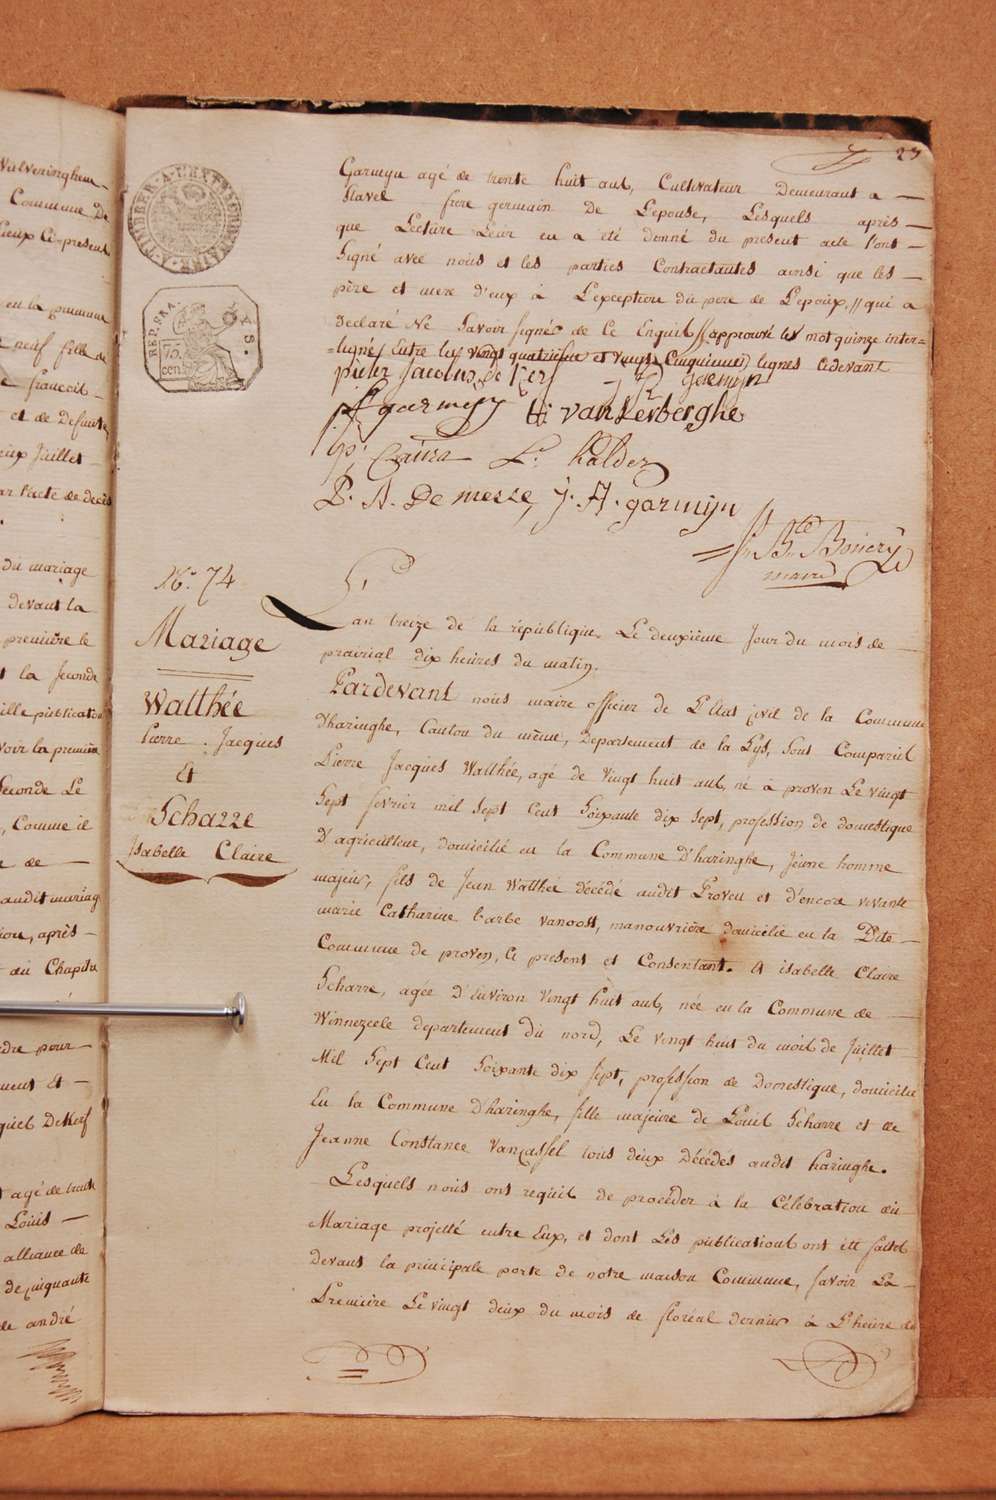 23
Garmyn agé de trente huit ans, Cultivateur Demeurant a —
Stavel frere germain de L'epouse, Lesquels après —
que Lecture Leur en a eté donné du present acte l'ont —
Signé avec nous et les parties Contractantes ainsi que les —
père et mere d'eux à L'exception du pere de L'epoux, // qui a
declaré Ne Savoir signér de Ce Enquis // approuvé les mot quinze inter-
-lignés Entre les vingt quatrieme et vingt Cinquieme lignes cidevant
pieter Jacobus de Kerf
garmyn H: van Lerberghe
L: halder
P. A. De mesre, J. A. garmijn
Jn Bte Bouery
maire
TIMBRE A L'EXTRAORDINAIRE
REP. FRA.
75
cen
No. 74
Mariage
Walthée
Pierre Jacques
Et
Scharre
Isabelle Claire
L'an treize de la république, Le deuxième Jour du mois de —
prairial dix heures du matin.
Pardevant nous maire officier de L'Etat civil de la Commune
D'haringhe, Canton du même, Departement de la Lys, sont Comparus
Pierre Jacques Walthée, agé de vingt huit ans, né à proven Le vingt
Sept fevrier mil Sept Cent Soixante dix Sept, profession de domestique
D'agriculteur, domicilié en la Commune D'haringhe, Jeune homme
majeur, fils de Jean Walthée décédé audit Proven et d'encore vivante
marie Catharine barbe vanoost, manouvrière domicilié en la Dite —
Commune de proven, ci present et Consentant. Et isabelle Claire
Scharre, agée D'Environ vingt huit ans, née en la Commune de —
Winnezeele departement du nord, Le vingt huit du mois de Juillet
Mil Sept Cent Soixante dix sept, profession de Domestique, domiciliée
En la Commune D'haringhe, fille majeure de Louis Scharre et de
Jeanne Constance Vancassel tous deux Décédés audit haringhe.
Lesquels nous ont requis de procéder à la Célébration du
Mariage projetté entre Eux, et dont Les publications ont été faites
devant la principale porte de notre maison Commune, savoir La —
Premiere Le vingt deux du mois de floréal dernier à L'heure de
Wulveringhem —
Commune De
Ci-present
neuf fille de
francois —
et de Defunte
Juillet —
l'acte de decès
du mariage
devant la
premiere le
la seconde
publication
voir la premiere
Seconde Le
, Comme il
de —
audit mariage
après —
du Chapitre
pour —
et —
De Kerf
agé de trente
Louis —
alliance de
de cinquante
de andré